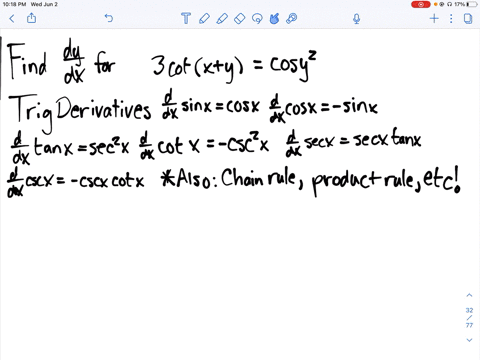 10:18 PM Wed Jun 2 17%
Find dy/dx for 3cot(x+y) = cosy²
Trig Derivatives d/dx sinx = cosx d/dx cosx = -sinx
d/dx tanx = sec²x d/dx cot x = -csc²x d/dx secx = secx tanx
d/dx cscx = -cscx cotx *Also: Chain rule, product rule, etc!
32
/
77